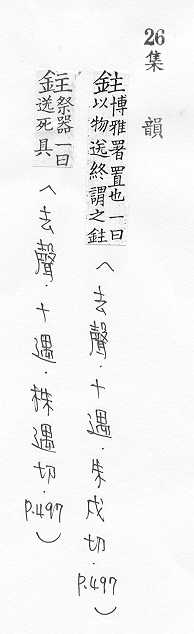 26 集韻
鉒 博雅署置也一曰以物送終謂之鉒(去聲.十遇.朱戍切.p.497)
鉒 祭器一曰送死具(去聲.十遇.株遇切.p.497)